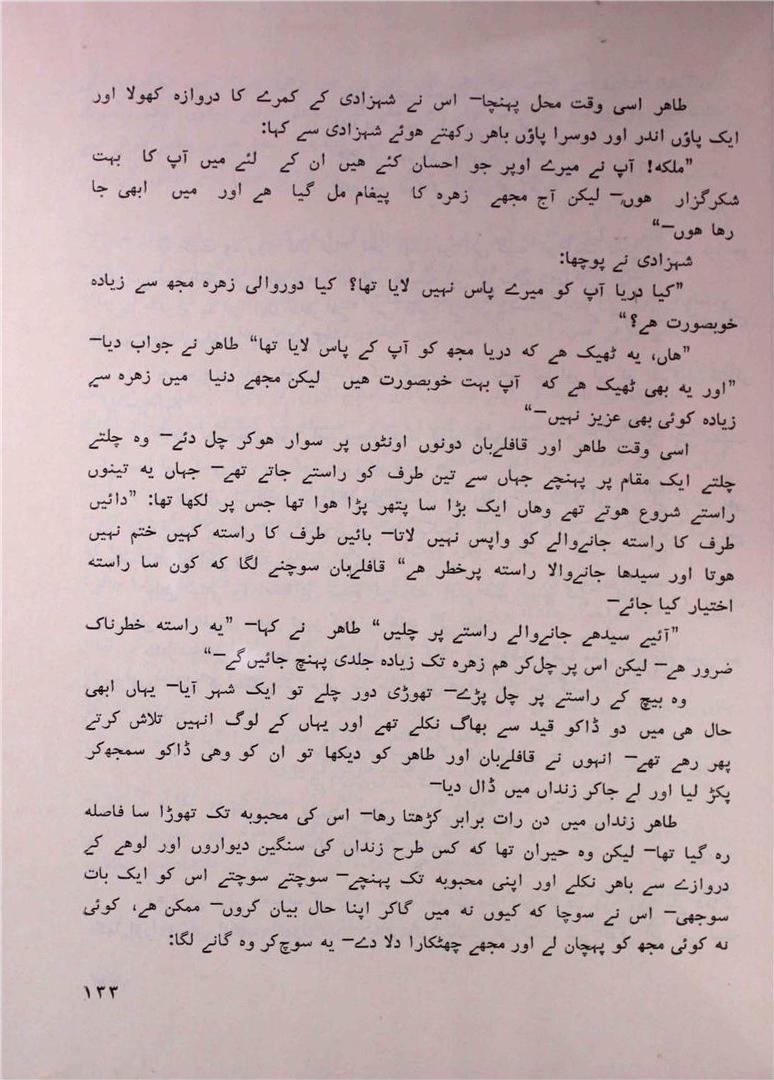 طاهر اسی وقت محل پهنچا— اس نے شهزادی کے کمرے کا دروازه کھولا اور
ایک پاؤں اندر اور دوسرا پاؤں باهر رکھتے هوئے شهزادی سے کہا:
”ملکه! آپ نے میرے اوپر جو احسان کئے هیں ان کے لئے میں آپ کا بهت
شکرگزار هوں— لیکن آج مجھے زهره کا پیغام مل گیا هے اور میں ابھی جا
رها هوں—“
شهزادی نے پوچھا:
”کیا دریا آپ کو میرے پاس نهیں لایا تھا؟ کیا دوروالی زهره مجھ سے زیاده
خوبصورت هے؟“
”هاں، یه ٹھیک هے که دریا مجھ کو آپ کے پاس لایا تھا“ طاهر نے جواب دیا—
”اور یه بھی ٹھیک هے که آپ بهت خوبصورت هیں لیکن مجھے دنیا میں زهره سے
زیاده کوئی بھی عزیز نهیں—“
اسی وقت طاهر اور قافلےبان دونوں اونٹوں پر سوار هوکر چل دئے— وه چلتے
چلتے ایک مقام پر پهنچے جهاں سے تین طرف کو راستے جاتے تھے— جهاں یه تینوں
راستے شروع هوتے تھے وهاں ایک بڑا سا پتھر پڑا هوا تھا جس پر لکھا تھا: ”دائیں
طرف کا راسته جانےوالے کو واپس نهیں لاتا— بائیں طرف کا راسته کهیں ختم نهیں
هوتا اور سیدھا جانےوالا راسته پرخطر هے“ قافلےبان سوچنے لگا که کون سا راسته
اختیار کیا جائے—
”آئیے سیدھے جانےوالے راستے پر چلیں“ طاهر نے کہا— ”یه راسته خطرناک
ضرور هے— لیکن اس پر چل‌کر هم زهره تک زیاده جلدی پهنچ جائیں‌گے—“
وه بیچ کے راستے پر چل پڑے— تھوڑی دور چلے تو ایک شهر آیا— یهاں ابھی
حال هی میں دو ڈاکو قید سے بھاگ نکلے تھے اور یهاں کے لوگ انهیں تلاش کرتے
پھر رهے تھے— انهوں نے قافلےبان اور طاهر کو دیکھا تو ان کو وهی ڈاکو سمجھ‌کر
پکڑ لیا اور لے جاکر زنداں میں ڈال دیا—
طاهر زنداں میں دن رات برابر کڑھتا رها— اس کی محبوبه تک تھوڑا سا فاصله
ره گیا تھا— لیکن وه حیران تھا که کس طرح زنداں کی سنگین دیواروں اور لوهے کے
دروازے سے باهر نکلے اور اپنی محبوبه تک پهنچے— سوچتے سوچتے اس کو ایک بات
سوجھی— اس نے سوچا که کیوں نه میں گاکر اپنا حال بیان کروں— ممکن هے، کوئی
نه کوئی مجھ کو پهچان لے اور مجھے چھٹکارا دلا دے— یه سوچ‌کر وه گانے لگا:
۱۳۳